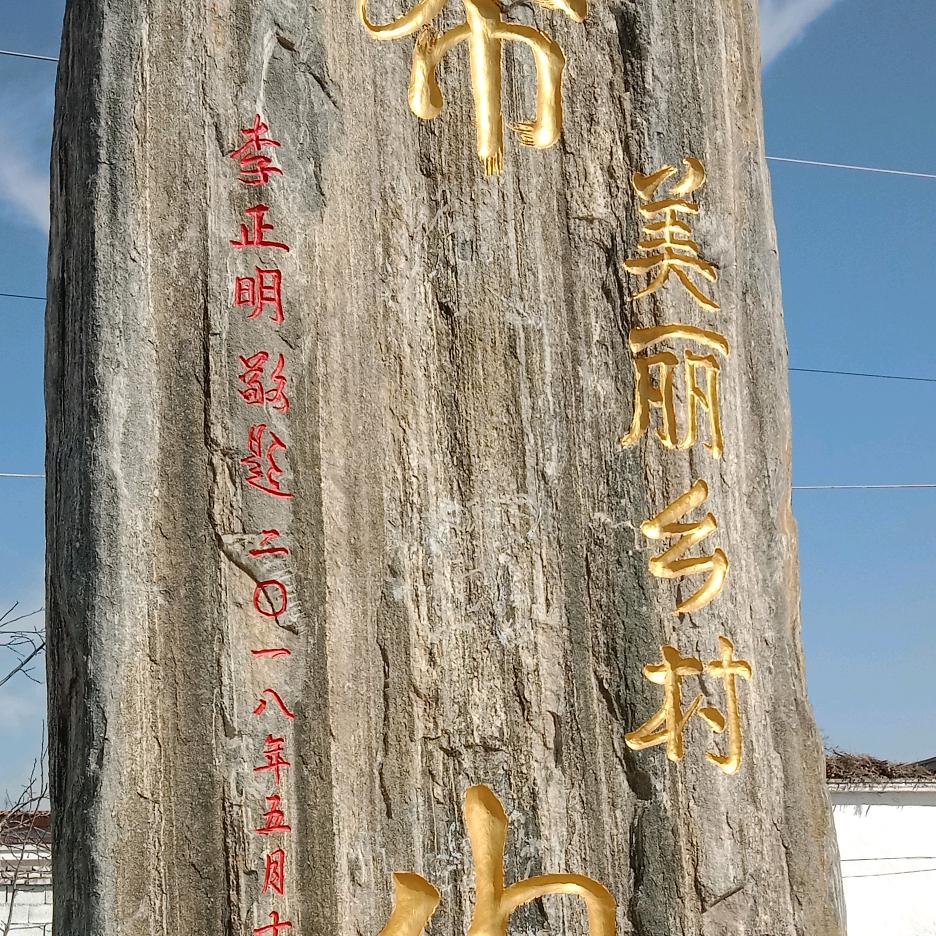 美丽乡村
李正明敬题二〇一八年五月